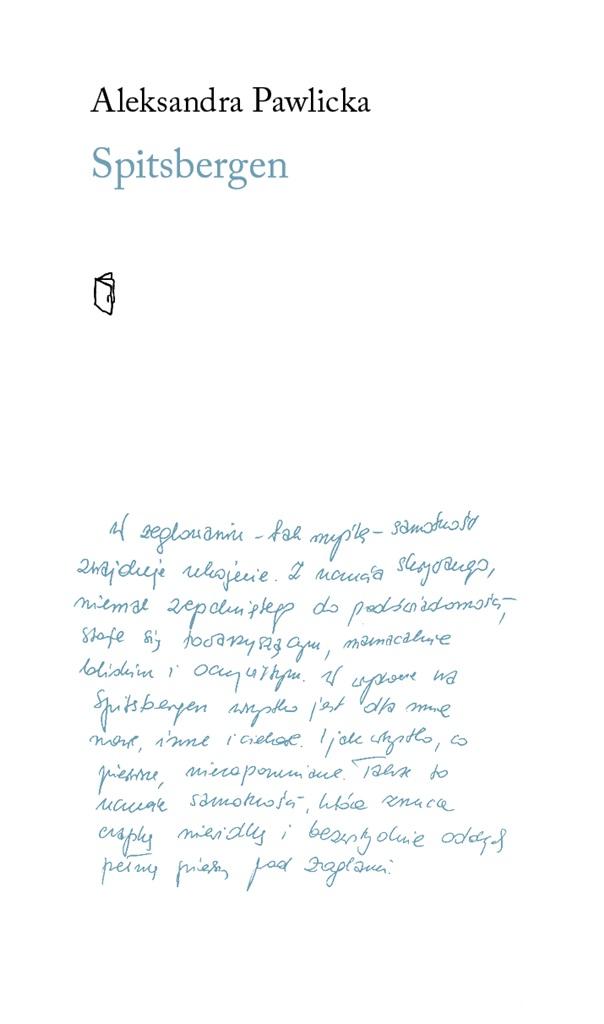 Aleksandra Pawlicka
Spitsbergen
W żeglowaniu – tak myślę – samotność
znajduje ukojenie. Z uczucia skrywanego,
niemal zepchniętego do podświadomości,
staje się towarzyszącym, namacalnie
bliskim i oczywistym. W wyprawie na
Spitsbergen wszystko jest dla mnie
nowe, inne i ciekawe. I jak wszystko, co
pierwsze, niezapomniane. Także to
uczucie samotności, która zrzuca
czapkę niewidkę i bezwstydnie oddycha
pełną piersią pod żaglami.